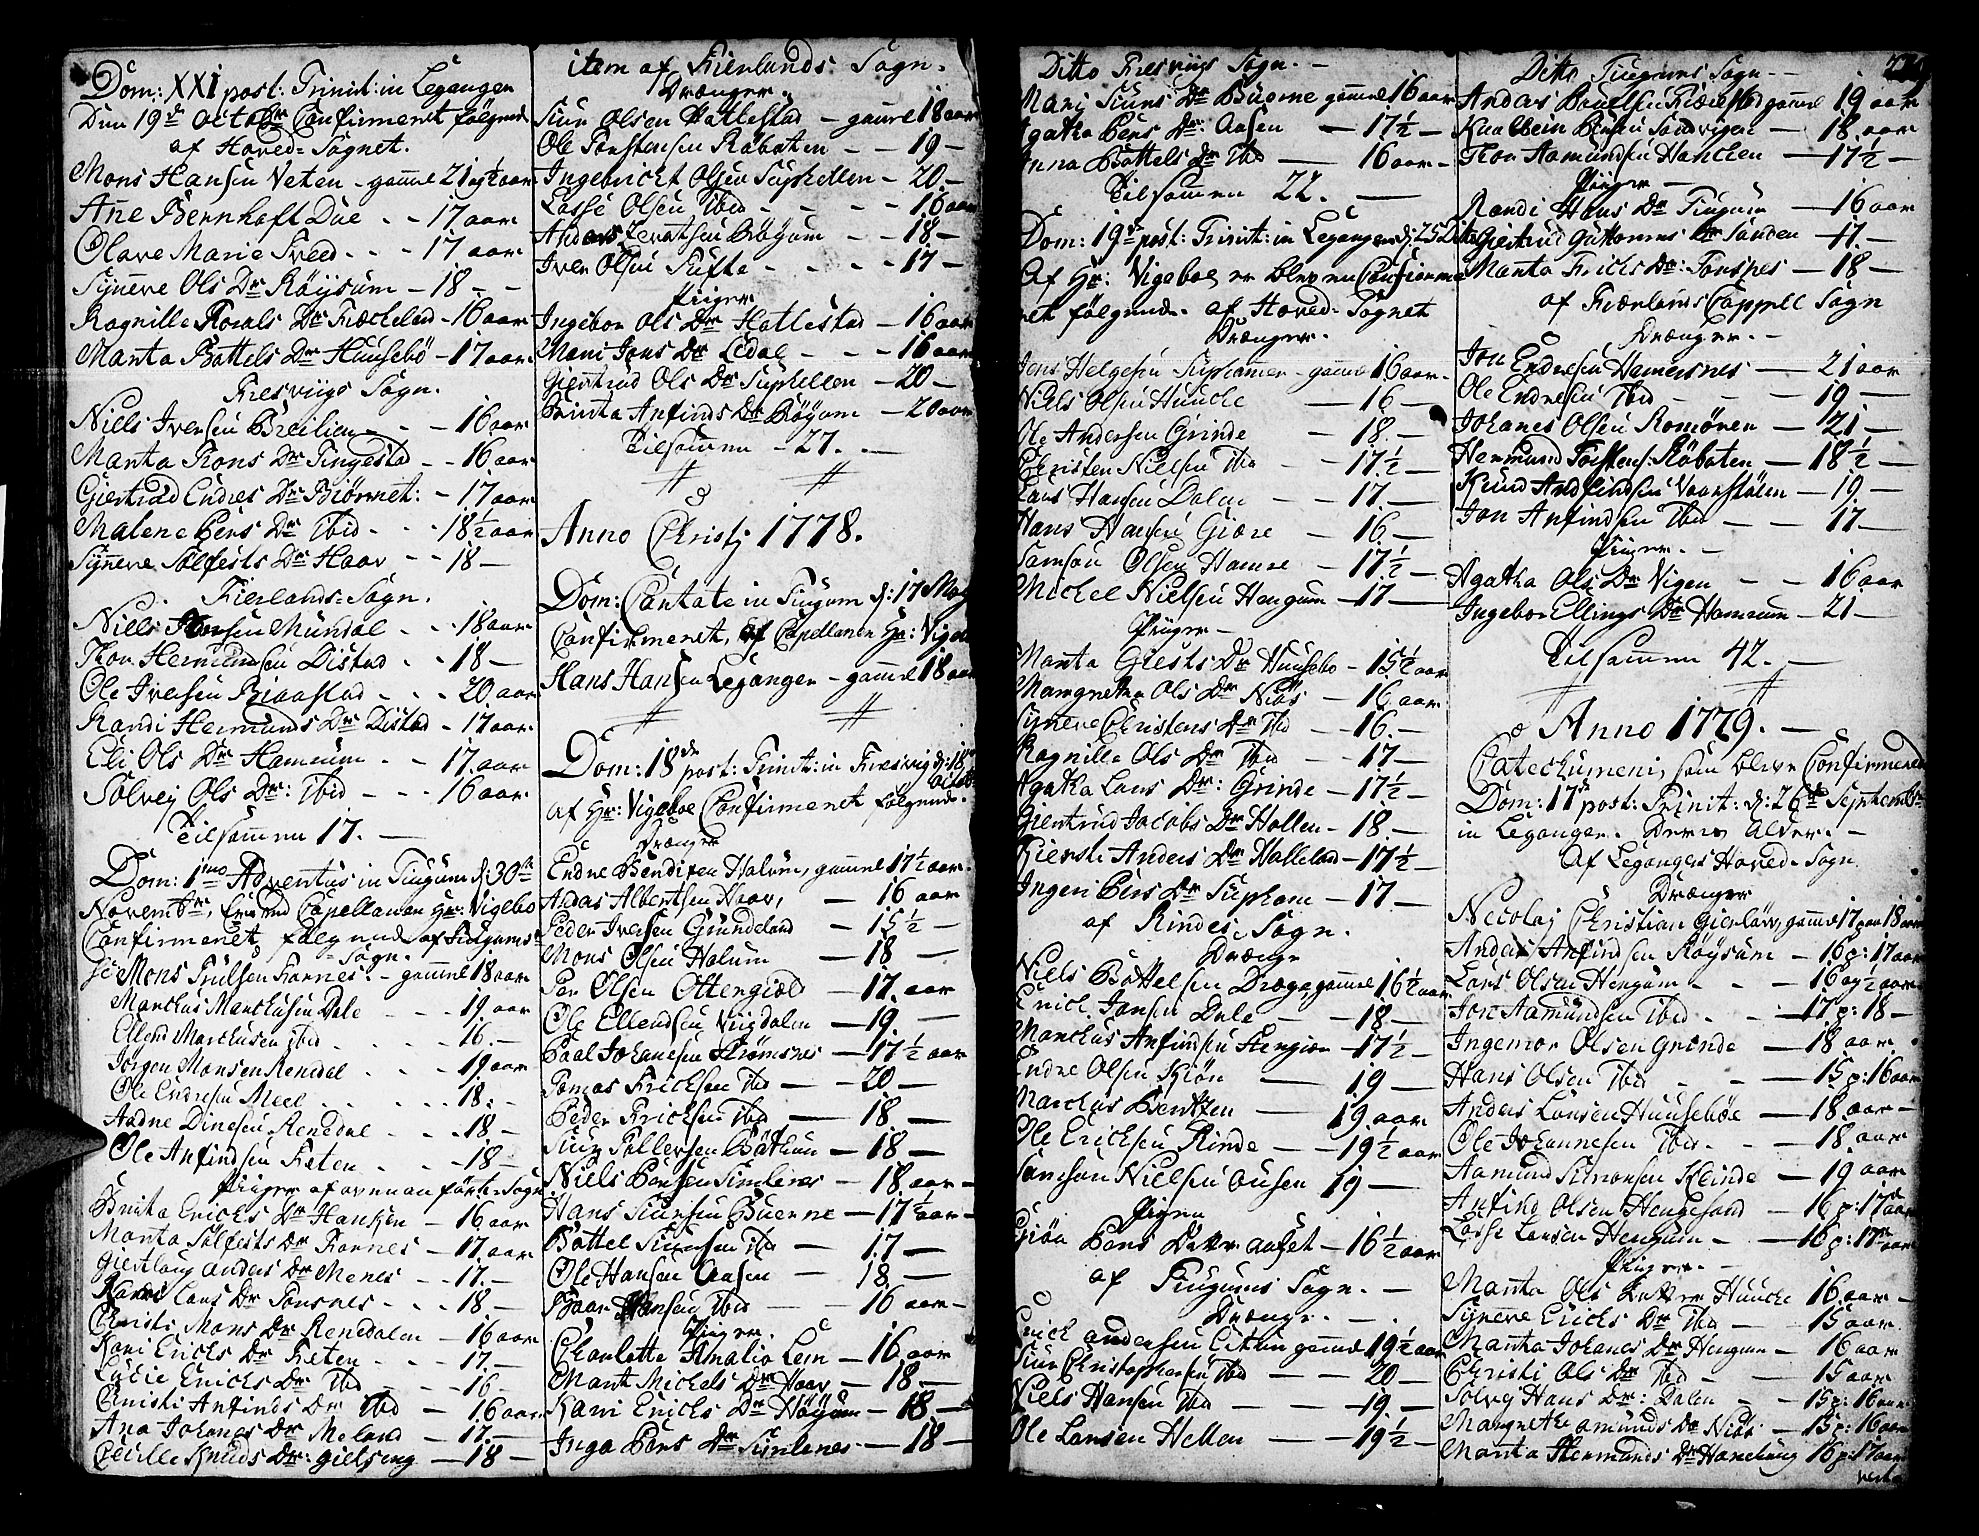 Dom: XXI post: Trinit: in Leganger
Den 19de Octobr Confirmeret følgende
af Hoved-Sognet.
Mons Hansen Veten - gammel 21 og ½ aar
Ane Bernhoft Due - - 17 aar
Olave Marie Sveed - - 17 aar
Synneve Ols Dr Røysum - 18 - -
Ragnille Roals Dr Fræchelad - 16 aar
Marita Bottels Dr Huusebö - 17 aar
Fresviigs Sogn.
Niels Iversen Breilien - - 16 aar
Marita Trons Dr Tingestad - - 16 aar
Giertrud Endres Dr Biørnet: - 17 aar
Malene Pers Dr Ibid - - 18½ aar
Synneve Sølfests Dr Haar - - 18 -
Fierlands-Sogn.
Niels Iversen Mundal - - 18 aar
Thor Hermundsen Distad - - 18 -
Ole Iversen Biaastad - - 20 aar
Randi Hermunds Dr Distad - 17 aar
Eli Ols Dr Hamrum - - 17 aar
Solvej Ols Dr: Ibid - - - 16 aar
Tilsammen 17. -
Dom: 1mo Adventus in Tiugum d: 30te
Novembr, Capellanen Hr: Vigeboe
Confirmeret følgende af Tiugums
Sogn.
Mons Trulsen Fornes - gammel 18 aar
Marchus Marchusen Dale - - 19 aar
Ellend Marchusen Ibid - - - 16 -
Jörgen Monsen Renedal - - - 19 aar
Ole Endresen Meel - - - 18 -
Andne Dinesen Renedal - - - 18 -
Ole Anfindsen Freten - - 18 -
Piiger af ovenanførte Sogn
Britta Erichs Dr Hanken - 16 aar
Marita Sølfests Dr Fornes - - 17 aar
Giertlaug Anders Dr Menes - - 17 -
Kari Lars Dr Tonsnes - - - 18 -
Christi Mons Dr Renedalen - 16 aar
Kari Erichs Dr Freten - - - 17 -
Lucie Erichs Dr Ibid - - - 16 -
Christi Anfinds Dr Ibid - 16 aar
Ana Johanes Dr Meland - 17 -
Cecille Knuds Dr: - 18
item af Fierlands Sogn.
Drænger.
Siur Olsen Hatlestad - gammel 18 aar
Ole Torstensen Röbaten - - 19 -
Ingebricht Olsen Suphellen - 20 -
Lasse Olsen Ibid - - - 16 aar
Anders Berntsen Böyum - - 18 -
Iver Olsen Tufte - - - - 17 -
Piiger
Ingebor Ols Dr Hatlestad - 16 aar
Mari Jons Dr Lidal - - - 16 aar
Giertrud Ols Dr Suphellen - 20 -
Britta Anfinds Dr Böyum - 20 aar
Tilsammen - 27. -
Anno Christj 1778.
Dom: Cantate in Tiugum d: 17 Maj
Confirmeret, af Capellanen Hr: Vigeboe
Hans Hansen Leganger - gammel 18 aar
Dom: 18de post: Trinit: in Fresvig d: 18
af Hr: Vigeboe Confirmeret følgende.
Drænger
Endre Bendixen Holum, gammel 17½ aar
Andas Albertsen Haar, - 16 aar
Peder Iversen Gründeland - 15½ -
Mons Olsen Holum - 18 -
Per Olsen Ottergield - 17. aar
Ole Ellendsen Viigdalen - 19. -
Poel Johanesen Strømsnes - 17½ aar
Tomas Frichsen Ibid - - 20 -
Peder Frichsen Ibid - - 18 -
Siur Pallersen Bøthun - 18 -
Niels Persen Simlenes - 18 aar -
Hans Siursen Buerne - 17½ aar -
Bottel Siursen Ibid - 17 -
Ole Hansen Aasen - 18. -
Baar Hansen Ibid - - 16 aar -
Piiger.
Charlotte Amalia Lem - 16 aar
Marit Michels Dr Haar - 18 -
Kari Erichs Dr Höyum - 18 -
Inga Pers Dr Simlenes - 18 -
Ditto Fresviigs Sogn. -
Mari Siurs Dr Buerne gammel 16 aar
Agatha Pers Dr: Aasen - 17½ -
Anna Bottels Dr Ibid - 16 aar -
Tilsammen 22. -
Dom: 19de post: Trinit: in Leganger d: 25 Dito
Af Hr: Vigeboe er bleven Confirmeret
følgende af Hoved-Sognet
Drænger.
Jens Helgesen Suphamer - gammel 16 aar -
Niels Olsen Huuche - 16 -
Ole Andersen Grinde - 18. -
Christen Nielsen Ibid - - 17½ -
Lars Hansen Dalen - 17. -
Hans Hansen Giære - 16. -
Samson Olsen Hamre - 17½ -
Michel Nielsen Hengum - 17 -
Piiger -
Marita Giests Dr Huusebo - 15½ aar
Margreta Ols Dr Niøs - 16 aar
Synneve Christens Dr Ibid - 16. -
Ragnille Ols Dr Ibid - 17. -
Agatha Lars Dr: Grinde - 17½ -
Giertrud Jacobs Dr Hollen - 18. -
Kiersti Anders Dr Hallelad - 17½ -
Ingeri Pers Dr Supham - 17 -
af Rinde Sogn.
Drænger
Niels Bottelsen Dræge gammel 16½ aar
Erich Jansen Dale - - 18 -
Marchus Anfindsen Hengien - 17½ -
Endre Olsen Kiøn - 19 -
Marchus Bentzen - 19. aar
Ole Erichsen Rinde - 19½ aar
Samson Nielsen Ousen 19 -
Pigen
Giøa Pers Datter Auset - 16½ aar
af Tiugums Sogn. -
Drænger - -
Erich Andersen gammel 19½ aar
Siur Christophersen Ibid - - 20 -
Niels Hansen Ibid - - - 19 -
Ole Larsen Hellen - - 19½ -
Ditto Tiugums Sogn - -
Andas Bottelsen gammel 19 aar
Knut Bensen Sandvigen - 18. aar
Thor Aamundsen Hanchen - 17½ -
Piiger -
Randi Hans Dr Tiugum - 16 aar
Giertrud Guttorms Dr Sanden - 17. -
Marita Frichs Dr: Tonsnes - 18 -
af Fierlands Cappell Sogn
Drænger. -
Jon Endresen Hamersnes - 21 aar
Ole Endresen Ibid - - - 19 -
Johanes Olsen Romøren - 21 -
Hermund Torstens: Röbaten - 18½ -
Knud Andfindsen Vaarstølen - 19 -
Jon Anfindsen Ibid - - - 17 -
Piiger. -
Agatha Ols Dr Vigen - - 16 aar
Ingebor Ellings Dr Hamrum - 21 -
Tilsammen 42. -
Anno 1779. -
Catechumeni, som bleve Confirmerede
Dom: 17de post: Trinit: d: 26de Septembr
in Leganger. Deres Alder. -
Af Leganger Hoved-Sogn
Drænger
Necolaj Christian Gierløv, gammel 17 paa 18 aar
Andas Anfindsen Røysum - 16 p: 17 aar
Lars Olsen Hengum - - - 16 og ½ aar
Jon Aamundsen Ibid - - - 17 p: 18 -
Ingemor Olsen Grinde - 18 aar -
Hans Olsen Ibid - - - 15 p: 16 aar
Anders Larsen Huusebøe - 18. aar -
Ole Johannesen Ibid - - - 18 aar
Aamund Simonsen Kleinde - 19 aar
Anfind Olsen Hengesand - 16 p: 17 aar
Lasse Larsen Hengum - - 16 p: 17 aar
Piiger. -
Marita Ols Datter Huuche 16 aar -
Synneve Erichs Dr Ibid - 15 aar
Marita Johanes Dr Hengum - 16 aar
Christi Ols Dr Ibid - - 15 aar
Solvej Hans Dr: Dalen - - 15 p: 16 aar
Margrethe Amunds Dr Niøs - 15 p: 16 aar
Marita Hermunds Dr 16 p: 17 aar